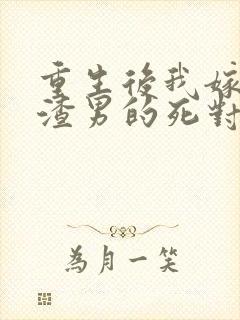 重生後我嫁
渣男的死對
為月一笑